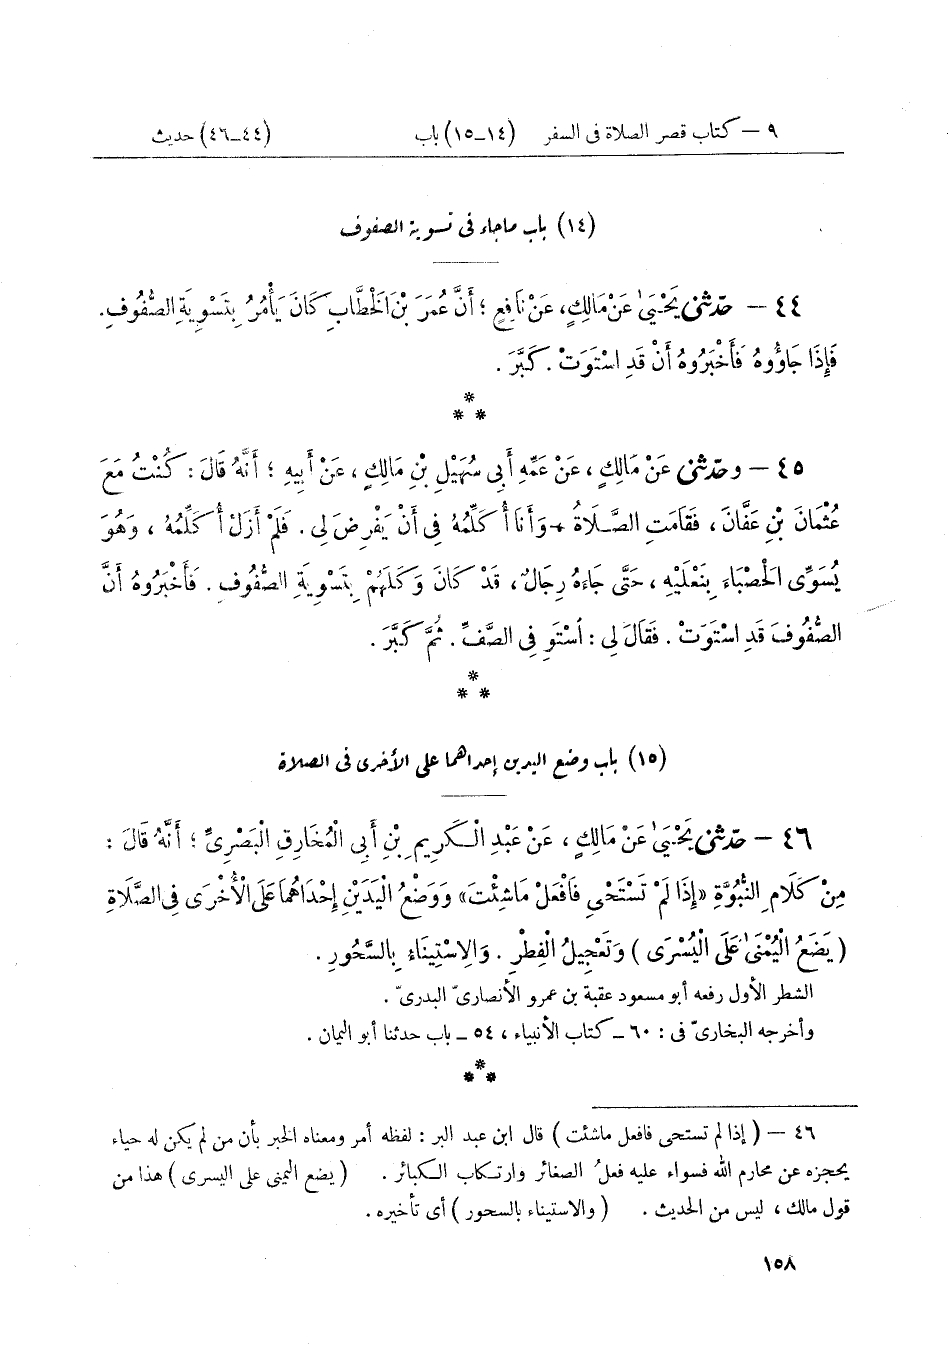 ٩ – كتاب قصر الصلاة فى السفر (١٤–١٥) باب (٤٤–٤٦) حديث
(١٤) باب ماجاء فى تسوية الصفوف
٤٤ – حَدَّثَنِى يَحْيَىٰ عَنْ مَالِكٍ، عَنْ نَافِعٍ ؛ أَنَّ عُمَرَ بْنَ الْخَطَّابِ كَانَ يَأْمُرُ بِتَسْوِيَةِ الصُّفُوفِ.
فَإِذَا جَاؤُوهُ فَأَخْبَرُوهُ أَنْ قَدِ اسْتَوَتْ . كَبَّرَ .
*
* *
٤٥ – وحَدَّثَنِى عَنْ مَالِكٍ ، عَنْ عَمِّهِ أَبِى سُهَيْلِ بْنِ مَالِكٍ ، عَنْ أَبِيهِ ؛ أَنَّهُ قَالَ : كُنْتُ مَعَ
عُثْمَانَ بْنِ عَفَّانَ ، فَقَامَتِ الصَّلَاةُ وَأَنَا أُكَلِّمُهُ فِى أَنْ يَفْرِضَ لِى . فَلَمْ أَزَلْ أُكَلِّمُهُ ، وَهُوَ
يُسَوِّى الْحَصْبَاءَ بِنَعْلَيْهِ ، حَتَّى جَاءَهُ رِجَالٌ ، قَدْ كَانَ وَكَلَهُمْ بِتَسْوِيَةِ الصُّفُوفِ . فَأَخْبَرُوهُ أَنَّ
الصُّفُوفَ قَدِ اسْتَوَتْ . فَقَالَ لِى : اسْتَوِ فِى الصَّفِّ . ثُمَّ كَبَّرَ .
*
* *
(١٥) باب وضع اليدين إحداهما على الأخرى فى الصلاة
٤٦ – حَدَّثَنِى يَحْيَىٰ عَنْ مَالِكٍ ، عَنْ عَبْدِ الْكَرِيمِ بْنِ أَبِى الْمُخَارِقِ الْبَصْرِىِّ ؛ أَنَّهُ قَالَ :
مِنْ كَلَامِ النُّبُوَّةِ «إِذَا لَمْ تَسْتَحْىِ فَافْعَلْ مَاشِئْتَ» وَوَضْعُ الْيَدَيْنِ إِحْدَاهُمَا عَلَى الْأُخْرَى فِى الصَّلَاةِ
( يَضَعُ الْيُمْنَىٰ عَلَى الْيُسْرَى ) وَتَعْجِيلُ الْفِطْرِ . وَالِاسْتِينَاءُ بِالسَّحُورِ .
الشطر الأول رفعه أبو مسعود عقبة بن عمرو الأنصارىّ البدرىّ .
وأخرجه البخارىّ فى : ٦٠ – كتاب الأنبياء ، ٥٤ – باب حدثنا أبو اليمان .
*
* *
٤٦ – ( إذا لم تستحى فافعل ماشئت ) قال ابن عبد البر : لفظه أمر ومعناه الخبر بأن من لم يكن له حياء
يحجزه عن محارم الله فسواء عليه فعلُ الصغائر وارتكاب الكبائر . ( يضع اليمنى على اليسرى ) هذا من
قول مالك ، ليس من الحديث . ( والاستيناء بالسحور ) أى تأخيره .
١٥٨